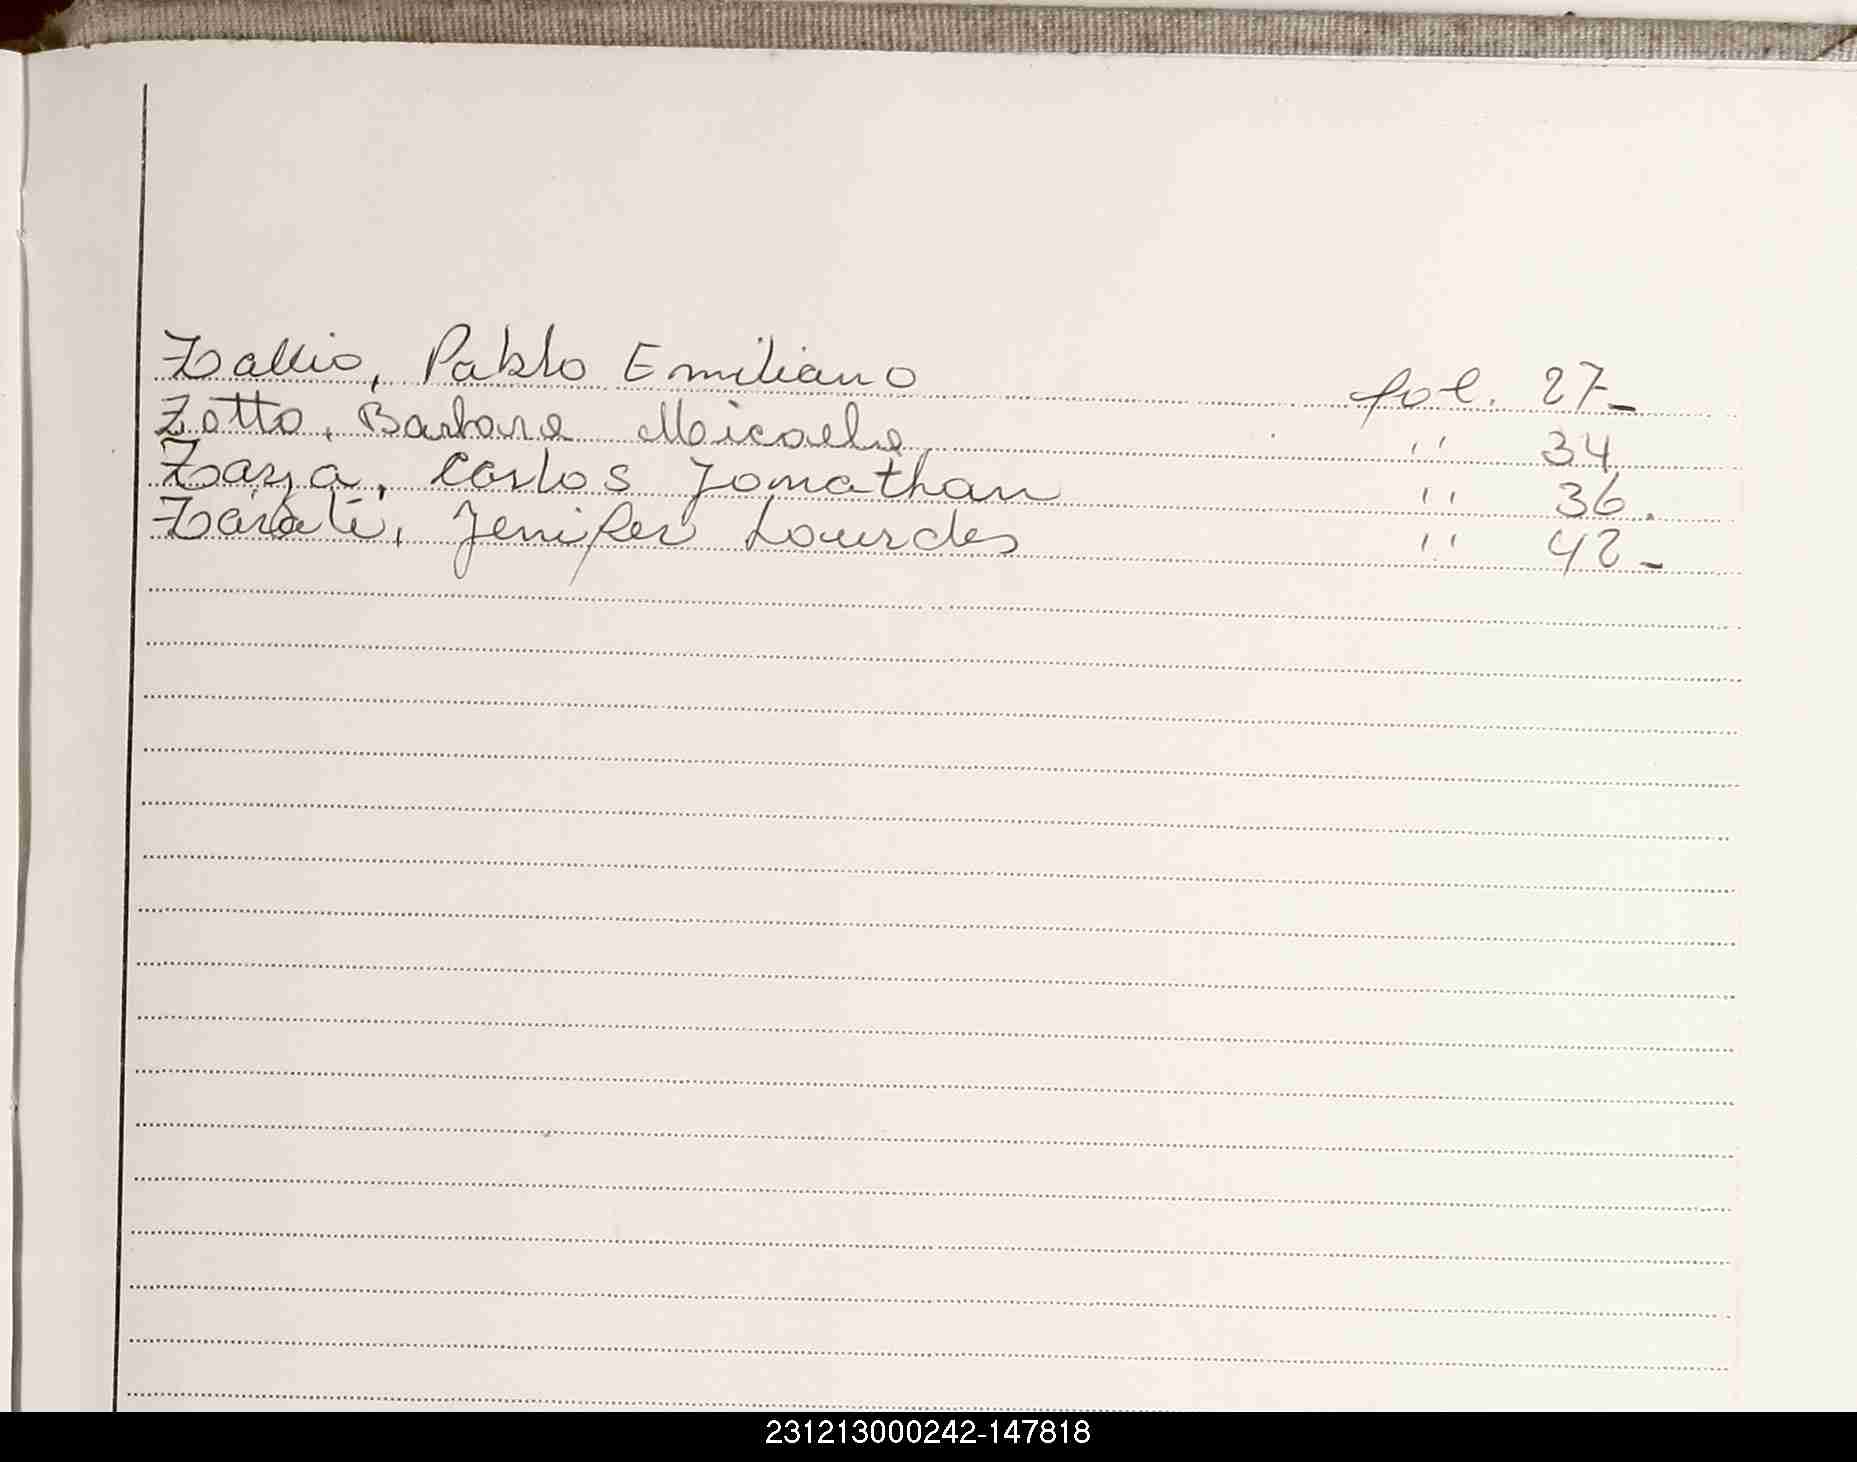 Zallio, Pablo Emiliano fol. 27-
Zotto, Barbara Micaela '' 34.
Carlos Jonathan '' 36.
Zarate, Jenifer Lourdes '' 42-
231213000242-147818